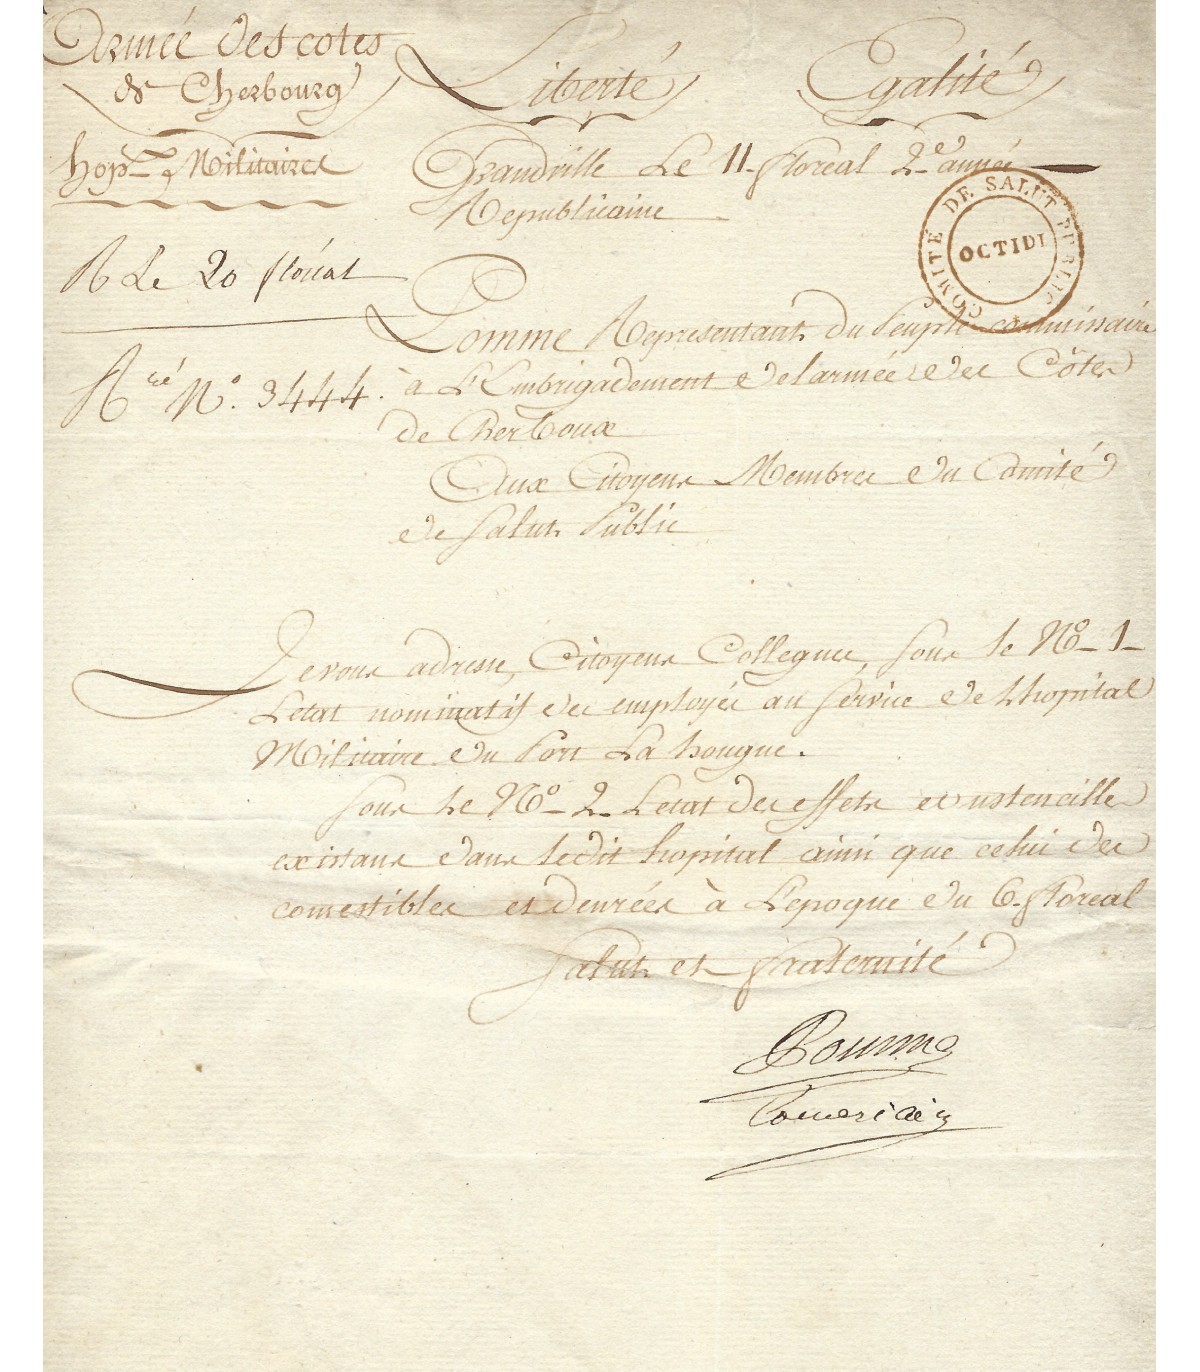 Armée des cotes
de Cherbourg
hop. Militaires
R Le 20 floréal
Rré No. 3444.
Liberté Egalité
Grandville Le 11 floreal 2e année
Republicaine
COMITÉ DE SALUT PUBLIC
OCTIDI
Pomme Representant du Peuple commissaire
à L'Embrigadement de l'armée des Côtes
de Cherboux
Aux Citoyens Membres du Comité
de Salut Public
Je vous adresse, Citoyens Collegues, sous le No 1
L'etat nominatif des employés au service de L'hopital
Militaire du Port La hougue.
Sous le No 2 L'etat des effets et ustencilles
existans dans ledit hopital ainsi que celui des
comestibles et denrées à L'epoque du 6 floreal
Salut et fraternité
Pomme
L'americain